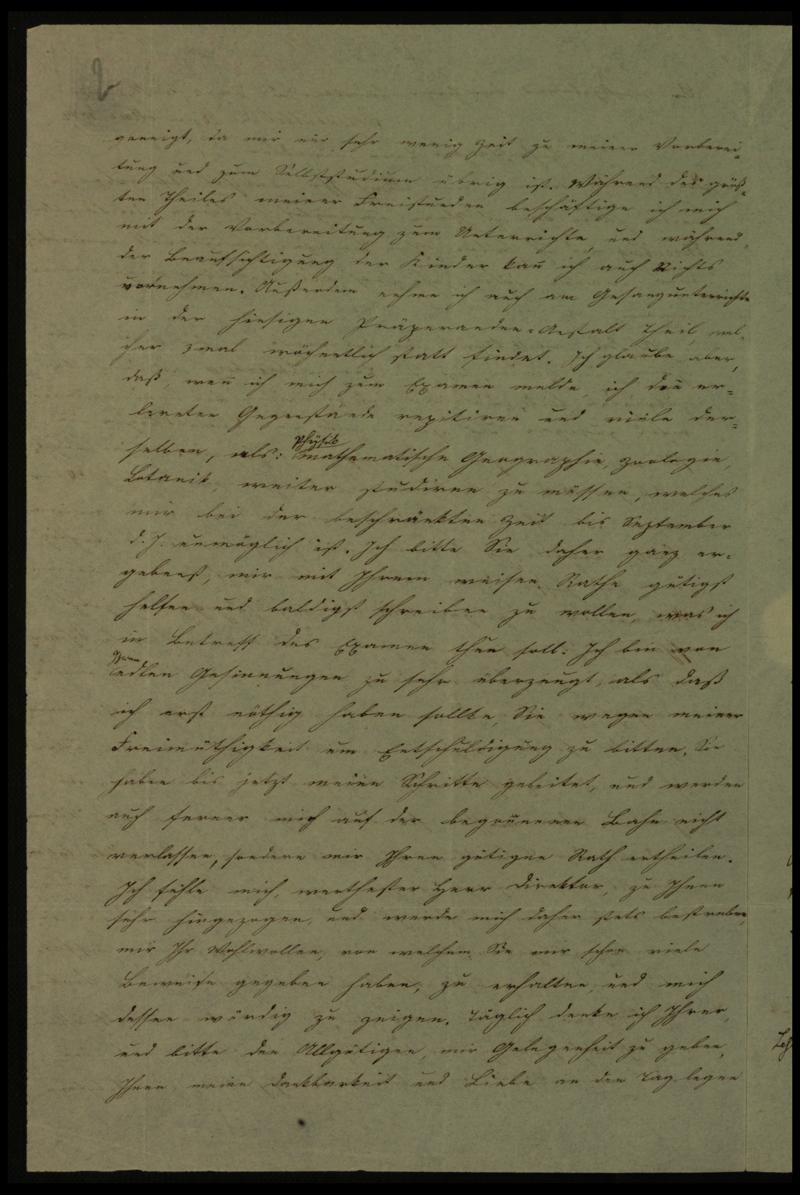 2
geneigt, da mir nur sehr wenig Zeit zu meiner Vorberei-
tung und zum Selbststudium übrig ist. Während des größ-
ten Theiles meiner Freistunden beschäftige ich mich
mit der Vorbereitung zum Unterrichte, und während
der Beaufsichtigung der Kinder kan̄ ich auch Nichts
vornehmen. Außerdem nehme ich auch am Gesangunterrichte
in der hiesigen Präparanden-Anstalt Theil, wel-
cher 3mal wöchentlich statt findet. Ich glaube aber,
daß, wen̄ ich mich zum Examen melde, ich die er-
lernten Gegenstände repitiren und viele der-
selben, als: Physik mathematische Geographie, Zoologie,
Botanik, weiter studiren zu müssen, welches
mir bei der beschränkten Zeit bis September
d. J. unmöglich ist. Ich bitte Sie daher ganz er-
gebenst, mir mit Ihrem weisen Rathe gütigst
helfen und baldigst schreiben zu wollen, was ich
in Betreff des Examen thun soll. Ich bin von
Ihren edlen Gesinnungen zu sehr überzeugt, als daß
ich erst nöthig haben sollte, Sie wegen meiner
Freimüthigkeit um Entschuldigung zu bitten. Sie
haben bis jetzt meine Schritte geleitet, und werden
auch ferner mich auf der begon̄enen Bahn nicht
verlassen, sondern mir Ihren gütigen Rath ertheilen.
Ich fühle mich, werthester Herr Direktor, zu Ihnen
sehr hingezogen, und werde mich daher stets bestreben,
mir Ihr Wohlwollen, von welchem Sie mir schon viele
Beweise gegeben haben, zu erhalten, und mich
dessen würdig zu zeigen. Täglich denke ich Ihrer,
und bitte den Allgütigen, mir Gelegenheit zu geben,
Ihnen meine Dankbarkeit und Liebe an den Tag legen